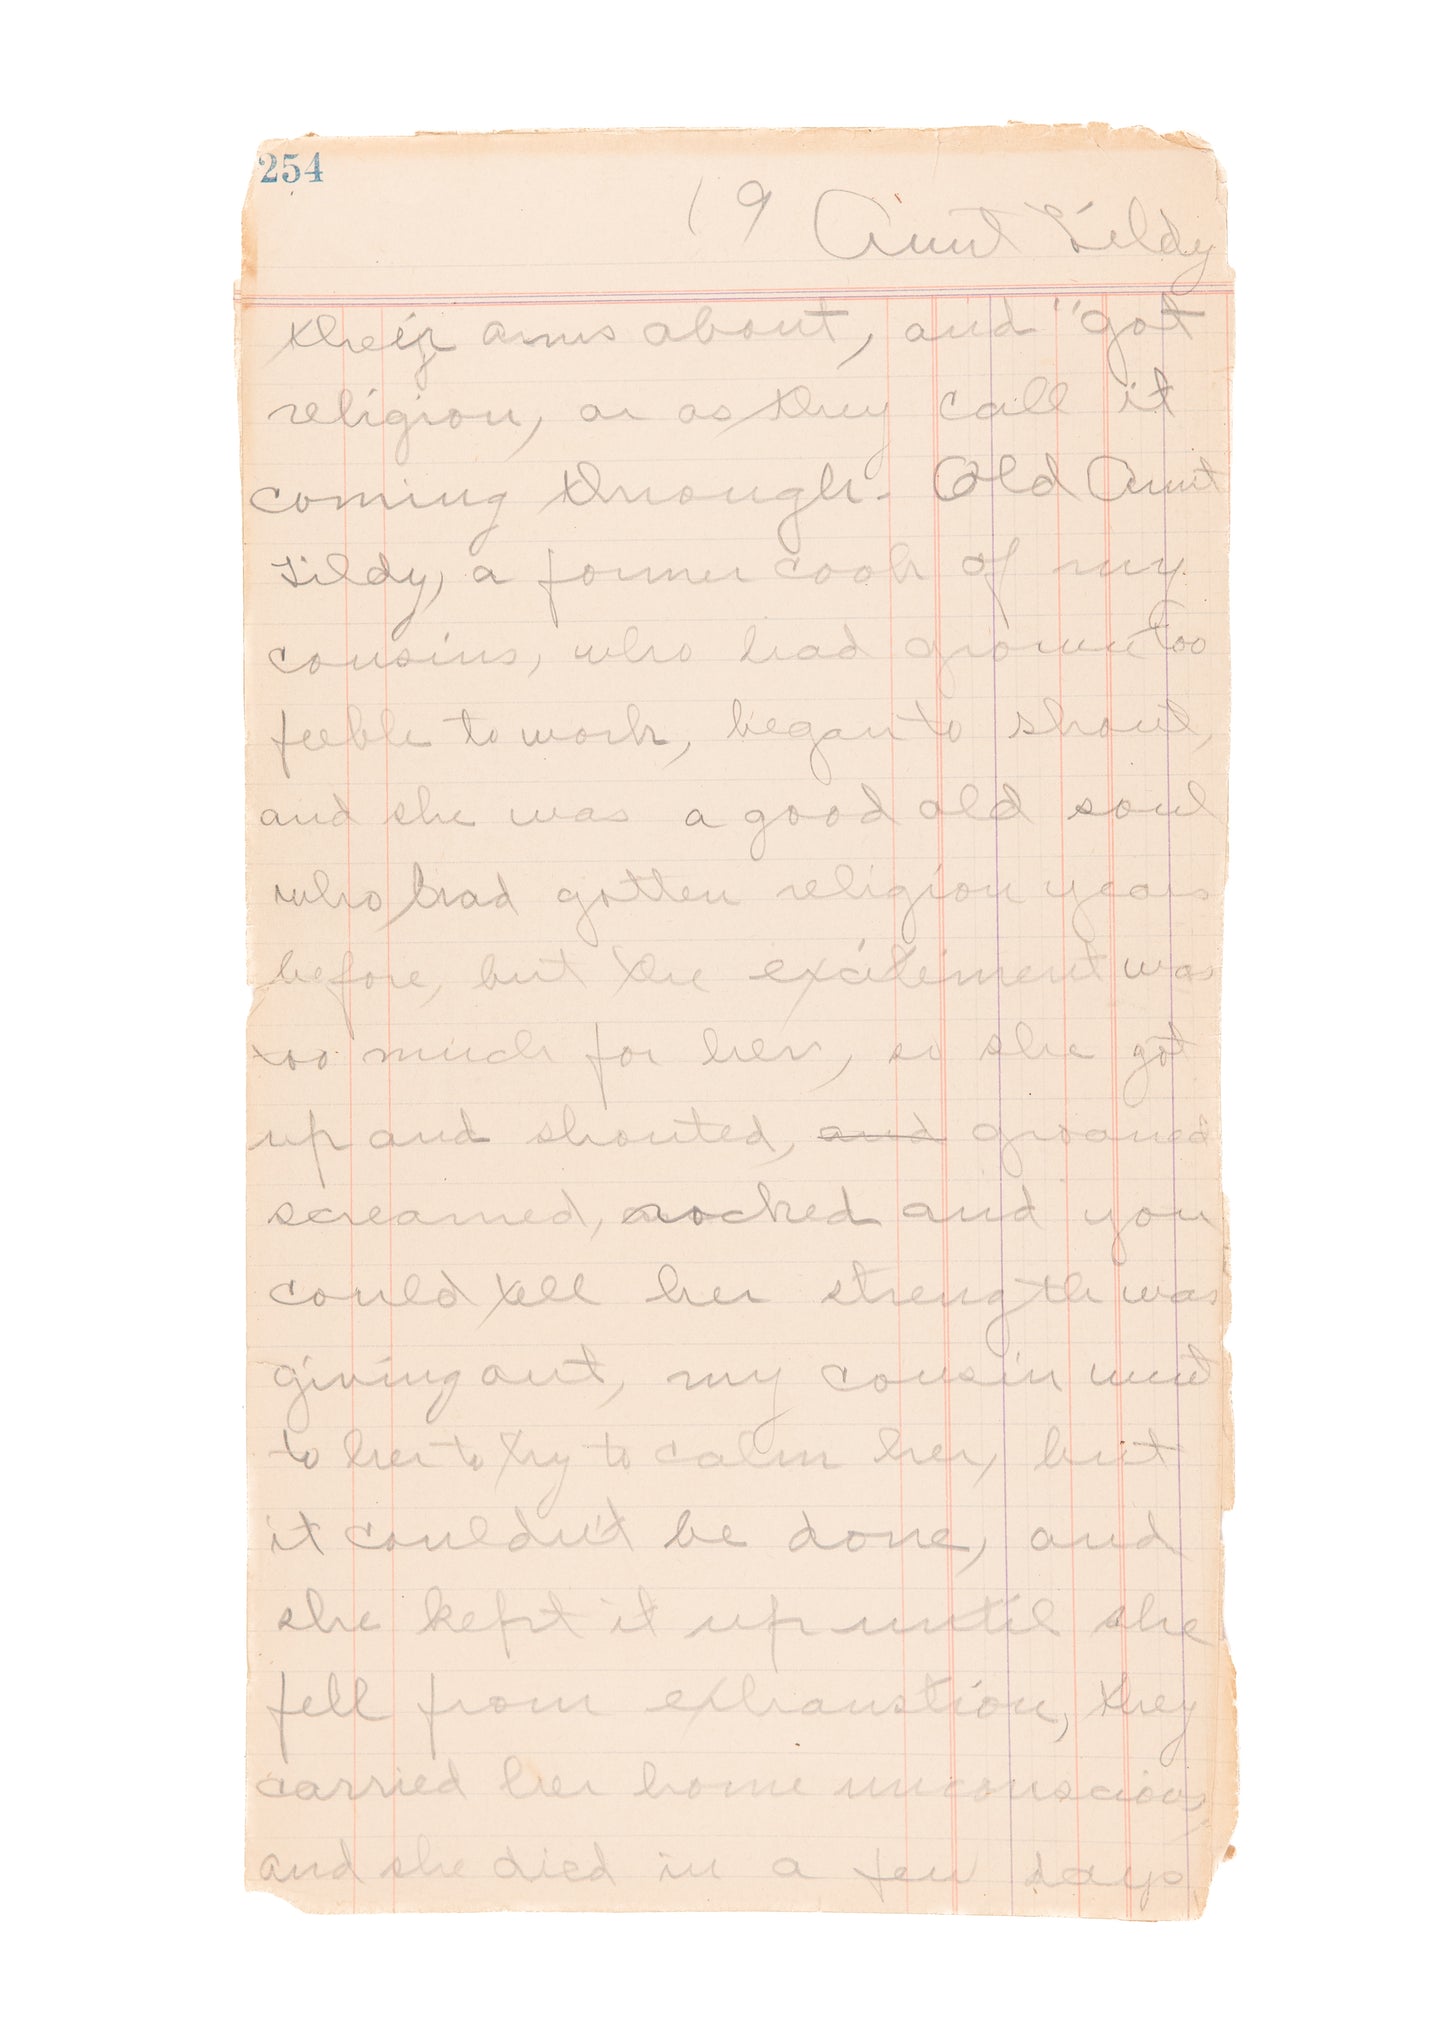 254
19 Aunt Tildy
their arms about, and "got
religion, or as they call it
coming through. Old Aunt
Tildy, a former cook of my
cousins, who had grown too
feeble to work, began to shout,
and she was a good old soul
who had gotten religion years
before, but the excitement was
too much for her, so she got
up and shouted, and groaned
screamed, rocked and you
could tell her strength was
giving out, my cousin went
to her to try to calm her, but
it couldn't be done, and
she kept it up until she
fell from exhaustion, they
carried her home unconscious,
and she died in a few days